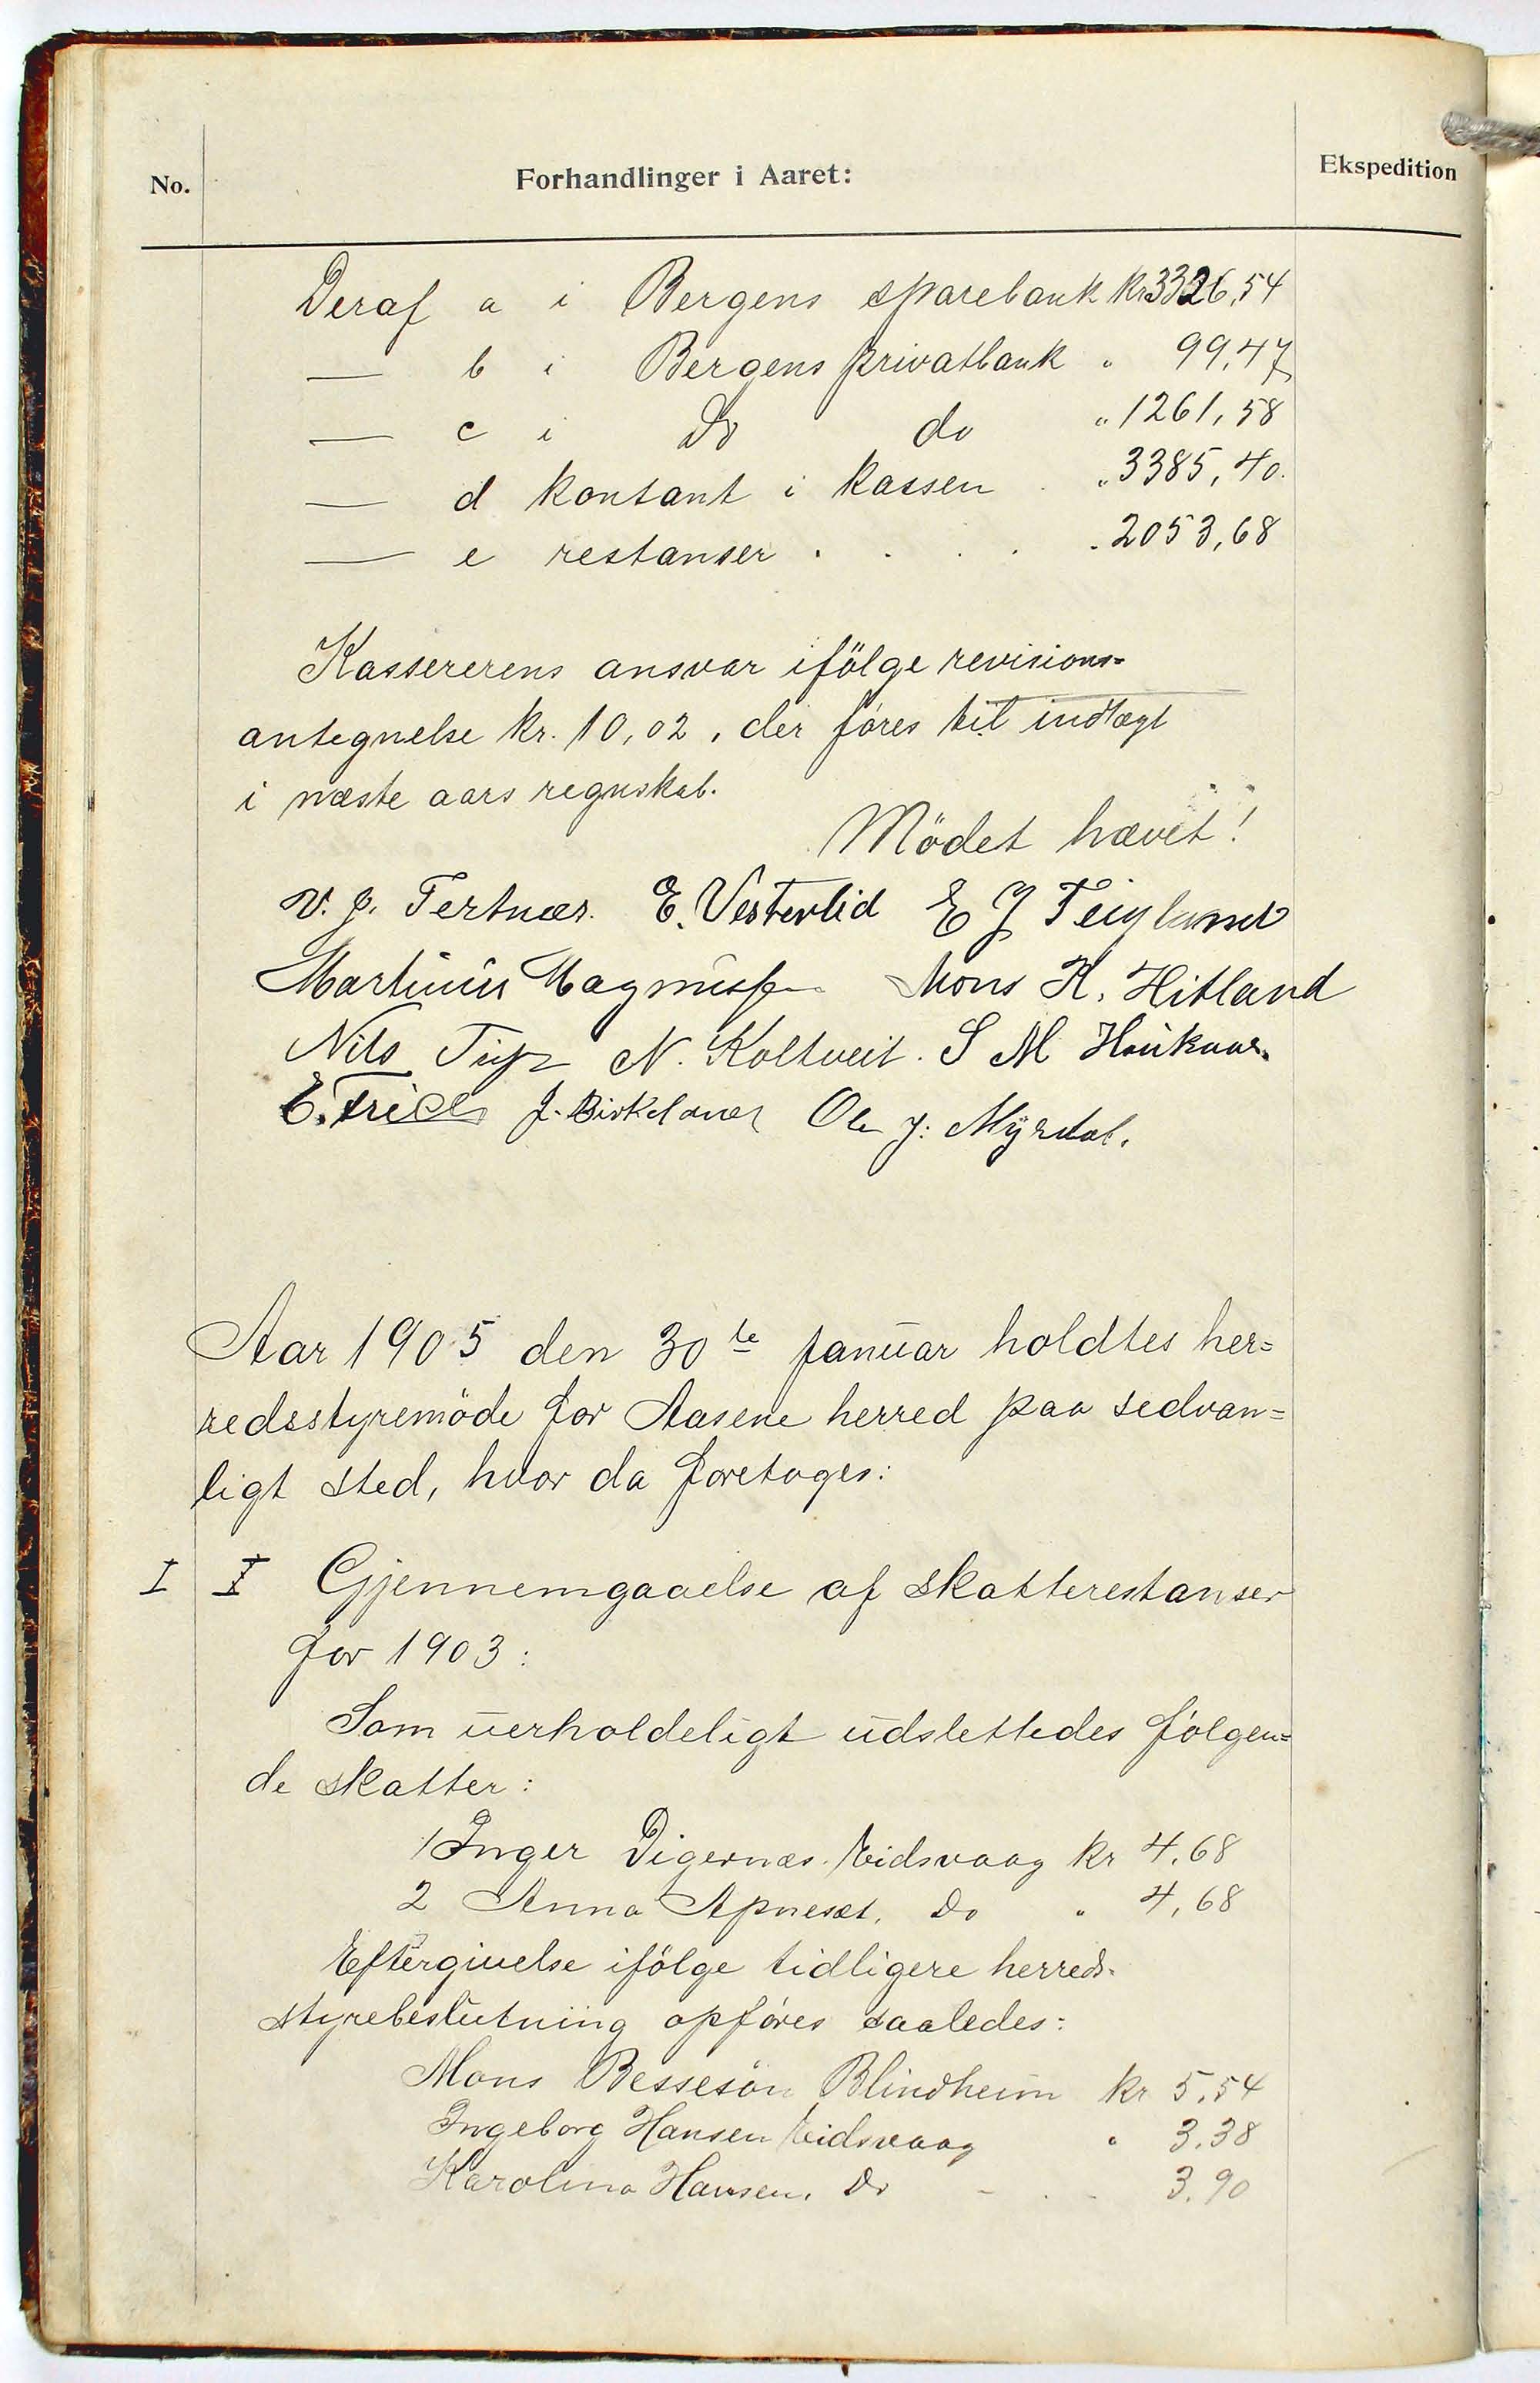 No. Forhandlinger i Aaret: Ekspedition
Deraf a i Bergens sparebank kr 3326,54
— b i Bergens privatbank " 99,47
— c i Do do " 1261,58
— d kontant i kassen . " 3385,40.
— e restanser . . . . " 2053,68
Kassererens ansvar ifölge revisions=
antegnelse kr. 10,02, der föres til indtægt
i næste aars regnskab.
Mödet hævet!
V. J. Tertnæs. E. Vesterlid E J Teigland
Martinus Magnussen Mons K. Hitland
Nils N. Koltveit. S M Haukaas.
E. J. Birkeland Ole J: Myrdal.
Aar 1905 den 30te januar holdtes her=
redsstyremöde for Aasene herred paa sedvan=
ligt sted, hvor da foretoges:
I I Gjennemgaaelse af skatterestanser
for 1903:
Som uerholdeligt udslettedes fölgen=
de skatter:
1 Inger Digernæs. Eidsvaag kr 4,68
2 Anna Apnesæt, Do " 4,68
Eftergivelse ifölge tidligere herreds-
styrebeslutning opföres saaledes:
Mons Bessesön Blindheim kr 5,54
Ingeborg Hansen Eidsvaag " 3,38
Karolina Hansen, Do - . - 3,90